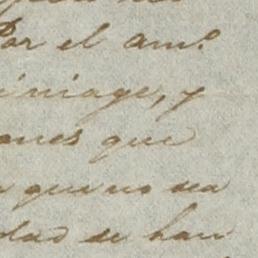 Por el am.o
iniage, y
ones que
que no sea
dad se han